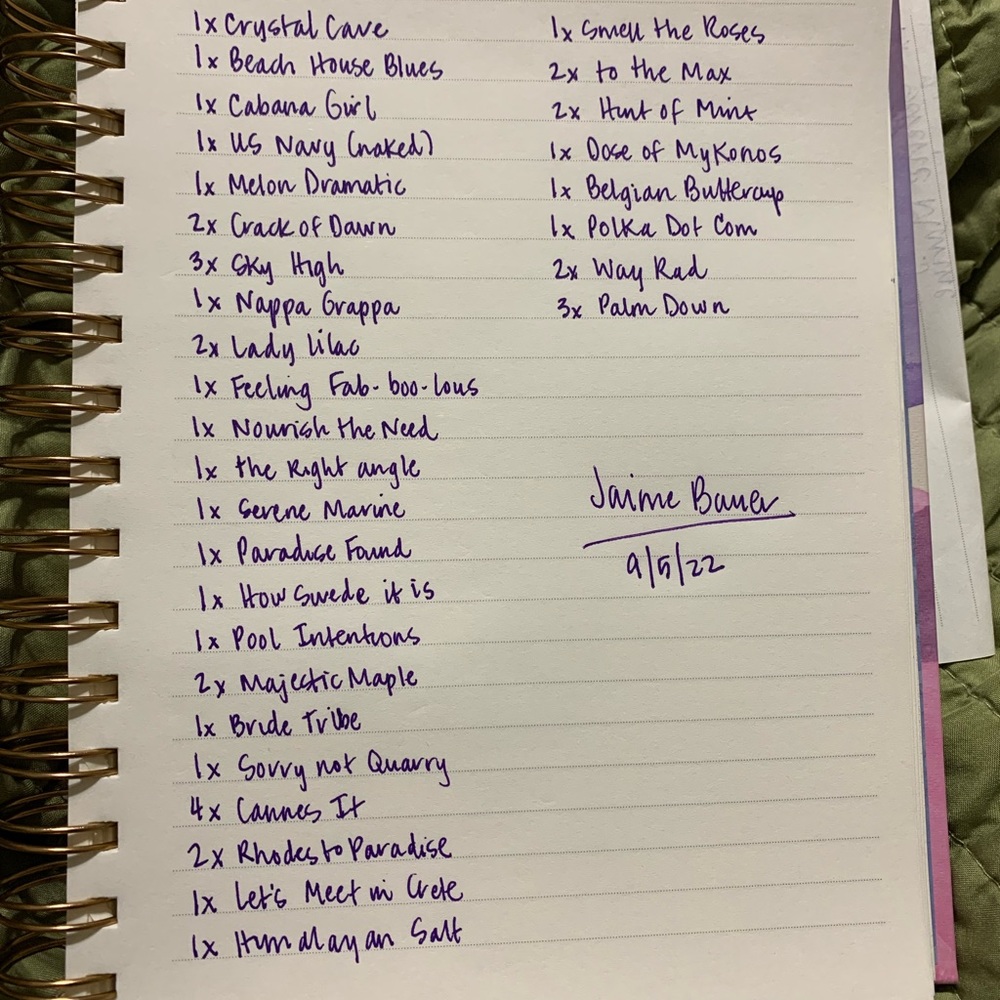 1x Crystal Cave
1x Beach House Blues
1x Cabana Girl
1x US Navy (naked)
1x Melon Dramatic
2x Crack of Dawn
3x Sky High
1x Nappa Grappa
2x Lady Lilac
1x Feeling Fab-boo-lous
1x Nourish the Need
1x the Right angle
1x Serene Marine
1x Paradise Found
1x How Swede it is
1x Pool Intentions
2x Majestic Maple
1x Bride Tribe
1x Sorry not Quarry
4x Cannes It
2x Rhodes to Paradise
1x Let's Meet in Crete
1x Himalayan Salt
1x Smell the Roses
2x to the Max
2x Hint of Mint
1x Dose of Mykonos
1x Belgian Buttercup
1x Polka Dot Com
2x Way Rad
3x Palm Down
Jaime Bauer
9/5/22